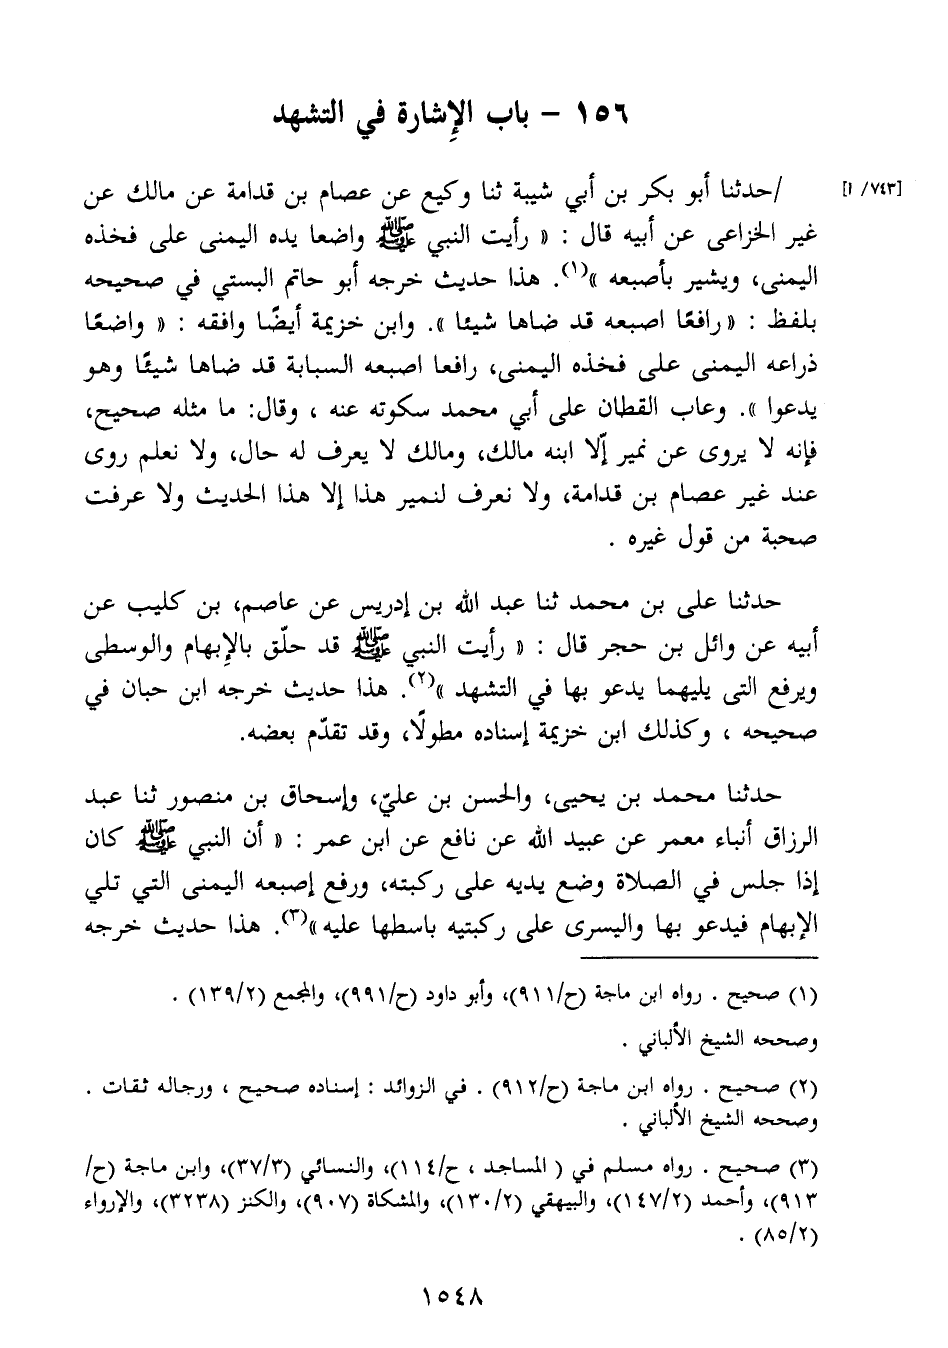 ١٥٦ – باب الإِشارة في التشهد
[٧٤٣/ أ] /حدثنا أبو بكر بن أبي شيبة ثنا وكيع عن عصام بن قدامة عن مالك عن
غير الخزاعى عن أبيه قال : « رأيت النبي ﷺ واضعا يده اليمنى على فخذه
اليمنى، ويشير بأصبعه »(١). هذا حديث خرجه أبو حاتم البستي في صحيحه
بلفظ : « رافعًا اصبعه قد ضاها شيئا ». وابن خزيمة أيضًا وافقه : « واضعًا
ذراعه اليمنى على فخذه اليمنى، رافعا اصبعه السبابة قد ضاها شيئًا وهو
يدعوا ». وعاب القطان على أبي محمد سكوته عنه ، وقال: ما مثله صحيح،
فإنه لا يروى عن نمير إلّا ابنه مالك، ومالك لا يعرف له حال، ولا نعلم روى
عند غير عصام بن قدامة، ولا نعرف لنمير هذا إلا هذا الحديث ولا عرفت
صحبة من قول غيره .
حدثنا على بن محمد ثنا عبد الله بن إدريس عن عاصم، بن كليب عن
أبيه عن وائل بن حجر قال : « رأيت النبي ﷺ قد حلّق بالإِبهام والوسطى
ويرفع التى يليهما يدعو بها في التشهد »(٢). هذا حديث خرجه ابن حبان في
صحيحه ، وكذلك ابن خزيمة إسناده مطولًا، وقد تقدّم بعضه.
حدثنا محمد بن يحيى، والحسن بن عليّ، وإسحاق بن منصور ثنا عبد
الرزاق أنباء معمر عن عبيد الله عن نافع عن ابن عمر : « أن النبي ﷺ كان
إذا جلس في الصلاة وضع يديه على ركبته، ورفع إصبعه اليمنى التي تلي
الإبهام فيدعو بها واليسرى على ركبتيه باسطها عليه»(٣). هذا حديث خرجه
(١) صحيح . رواه ابن ماجة (ح/٩١١)، وأبو داود (ح/٩٩١)، والمجمع (١٣٩/٢) .
وصححه الشيخ الألباني .
(٢) صحيح . رواه ابن ماجة (ح/٩١٢) . في الزوائد : إسناده صحيح ، ورجاله ثقات .
وصححه الشيخ الألباني .
(٣) صحيح . رواه مسلم في ( المساجد ، ح/١١٤)، والنسائي (٣٧/٣)، وابن ماجة (ح/
٩١٣)، وأحمد (١٤٧/٢)، والبيهقي (١٣٠/٢)، والمشكاة (٩٠٧)، والكنز (٣٢٣٨)، والإرواء
(٨٥/٢) .
١٥٤٨